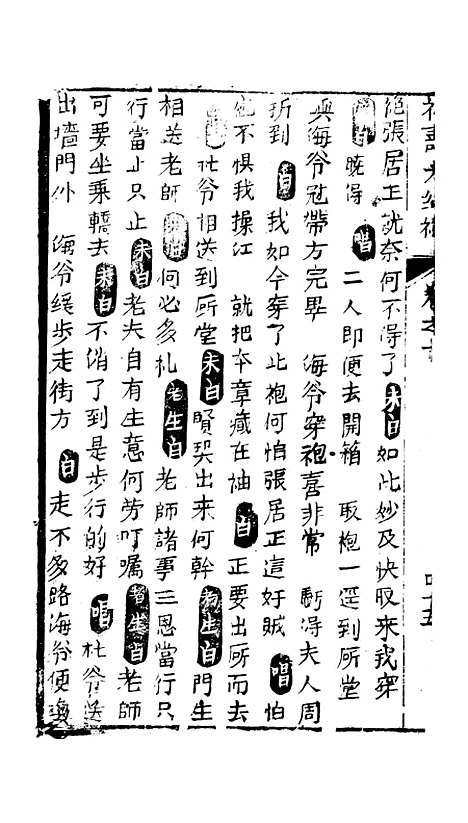 絕張居正就奈何不得了末白如此妙及快取来我穿
白曉得　唱　二人即便去開箱　取袍一逕到所堂
與海爷冠帶方完畢　海爷穿袍喜非常　虧得夫人周
折到　白　我如今穿了此袍何怕張居正這奸賊　唱　怕
他不惧我操江　就把本章藏在袖　白　正要出所而去
杜爷相送到所堂末白賢契出来何幹老生白門生
相送老師　何必多礼老生白老師諸事三恩當行只
行當止只止末白老夫自有主意何劳叮嘱老生白老師
可要坐乘轎去末白不消了到是步行的好　唱　杜爷送
出墻門外　海爷缓步走街方　白　走不多路海爷便